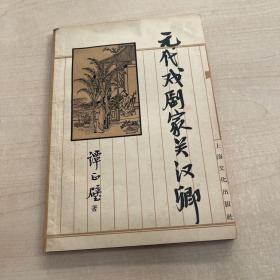 元代戏剧家关汉卿
谭正璧 著
上海文化出版社